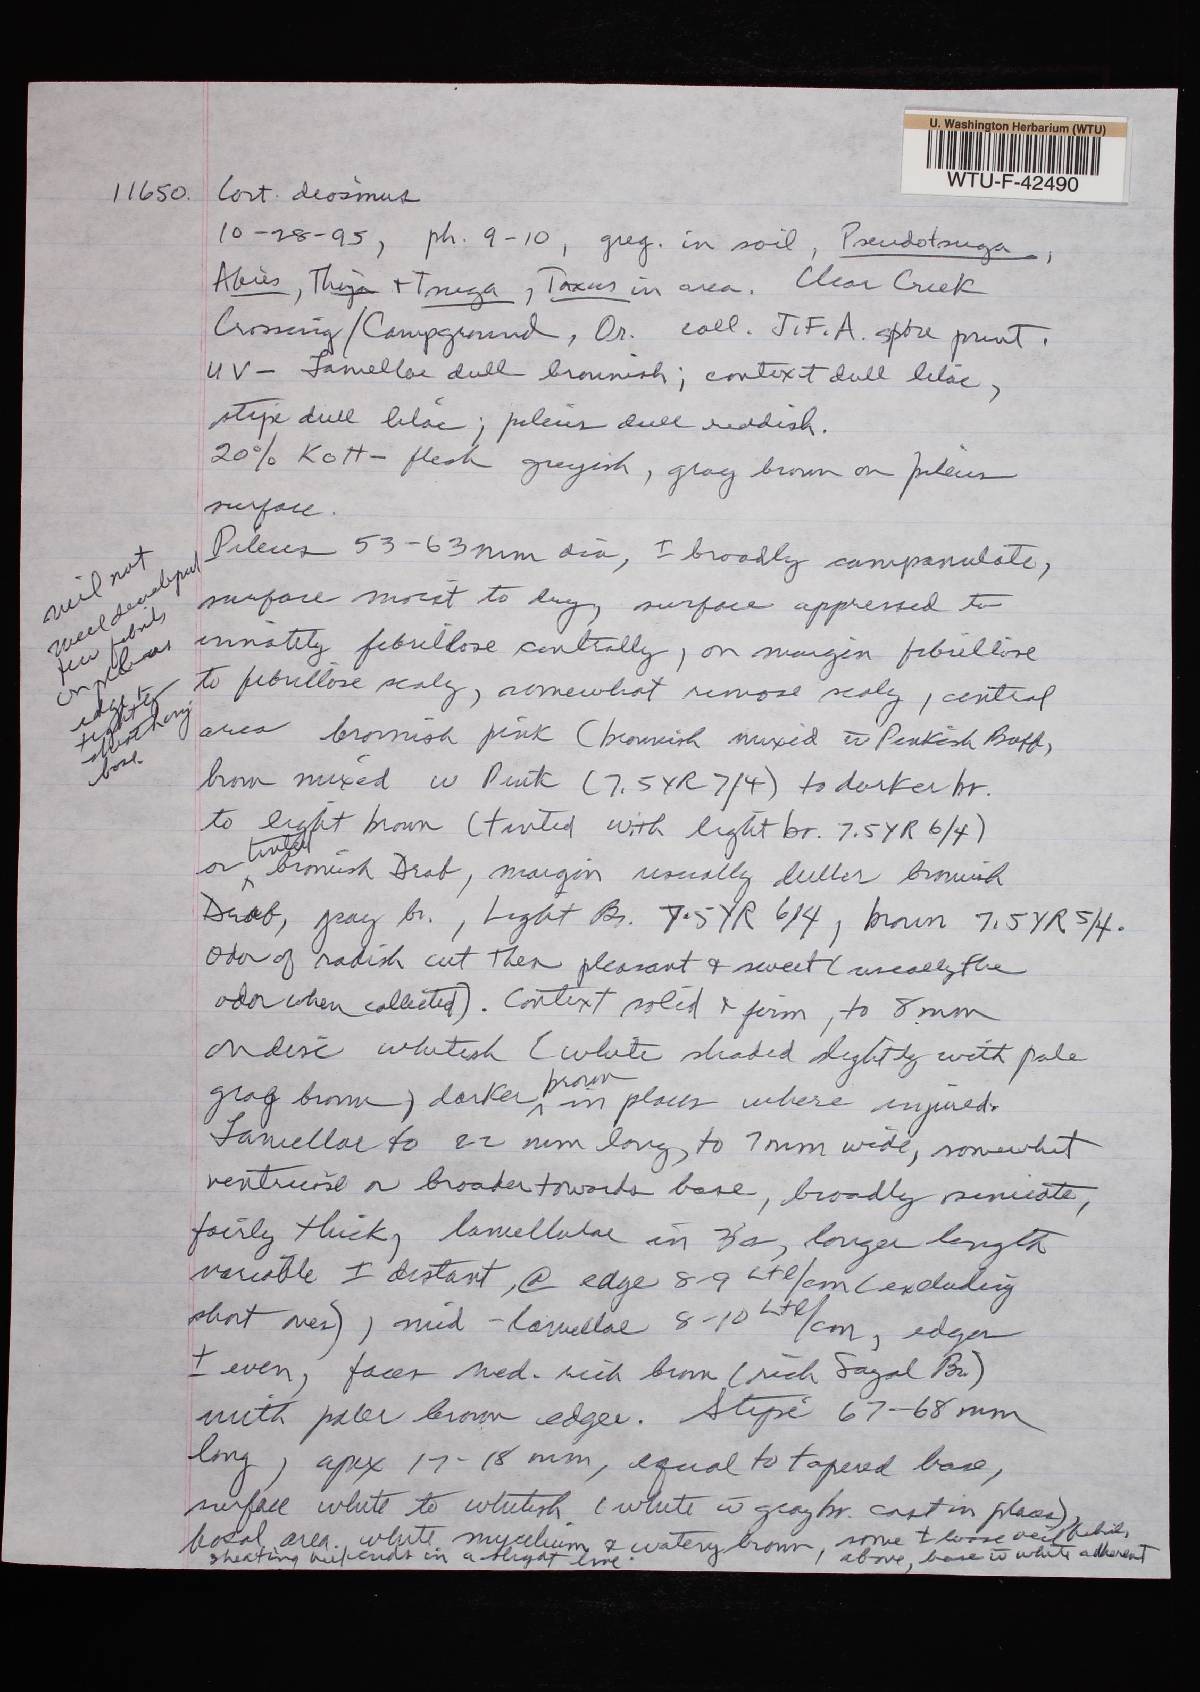 U. Washington Herbarium (WTU)
WTU-F-42490
11650. Cort. deosmus
10-28-95, ph. 9-10, greg. in soil, Pseudotsuga,
Abies, Thuja + Tsuga, Taxus in area. Clear Creek
Crossing/Campground, Or. coll. J.F.A. spore print.
UV - Lamellae dull brownish; context dull lilac,
stipe dull lilac; pileus dull reddish.
20% KOH - flesh greyish, gray brown on pileus
surface.
Pileus 53-63 mm dia, ± broadly campanulate,
surface moist to dry, surface appressed to
innately fibrillose centrally, on margin fibrillose
to fibrillose scaly, somewhat rimose scaly, central
area brownish pink (brownish mixed w̄ Pinkish Buff,
brown mixed w Pink (7.5YR 7/4) to darker br.
to light brown (tinted with light br. 7.5YR 6/4)
or tinted brownish Drab, margin usually duller brownish
Drab, gray br., Light Br. 7.5YR 6/4, brown 7.5YR 5/4.
Odor of radish cut then pleasant & sweet (usually the
odor when collected). Context solid & firm, to 8 mm
on disc whitish (white shaded slightly with pale
gray brown) darker brown in places where injured.
Lamellae to 22 mm long, to 7 mm wide, somewhat
ventricose or broader towards base, broadly sinuate,
fairly thick, lamellulae in 3's, longer length
variable ± distant, @ edge 8-9 L+l/cm (excluding
short ones), mid-lamellae 8-10 L+l/cm, edges
± even, faces med. rich brown (rich Sayal Br.)
with paler brown edges. Stipe 67-68 mm
long, apex 17-18 mm, equal to tapered base,
surface white to whitish (white w̄ gray br. cast in places),
basal area white mycelium & watery brown, some ± loose veil fibrils
above, base w̄ white adherent
sheating veil ends in a slight line.
veil not
well developed
few fibrils
on pileus
edge +
tight to
sheathing
base.